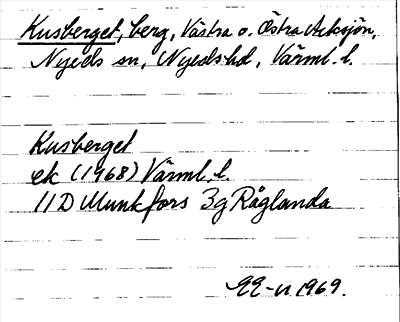 Kusberget, berg, Västra o. Östra Acksjön,
Nyeds sn, Nyeds hd, Värml. l.
Kusberget
ek (1968) Värml. l.
11D Munkfors 3g Råglanda
1969.